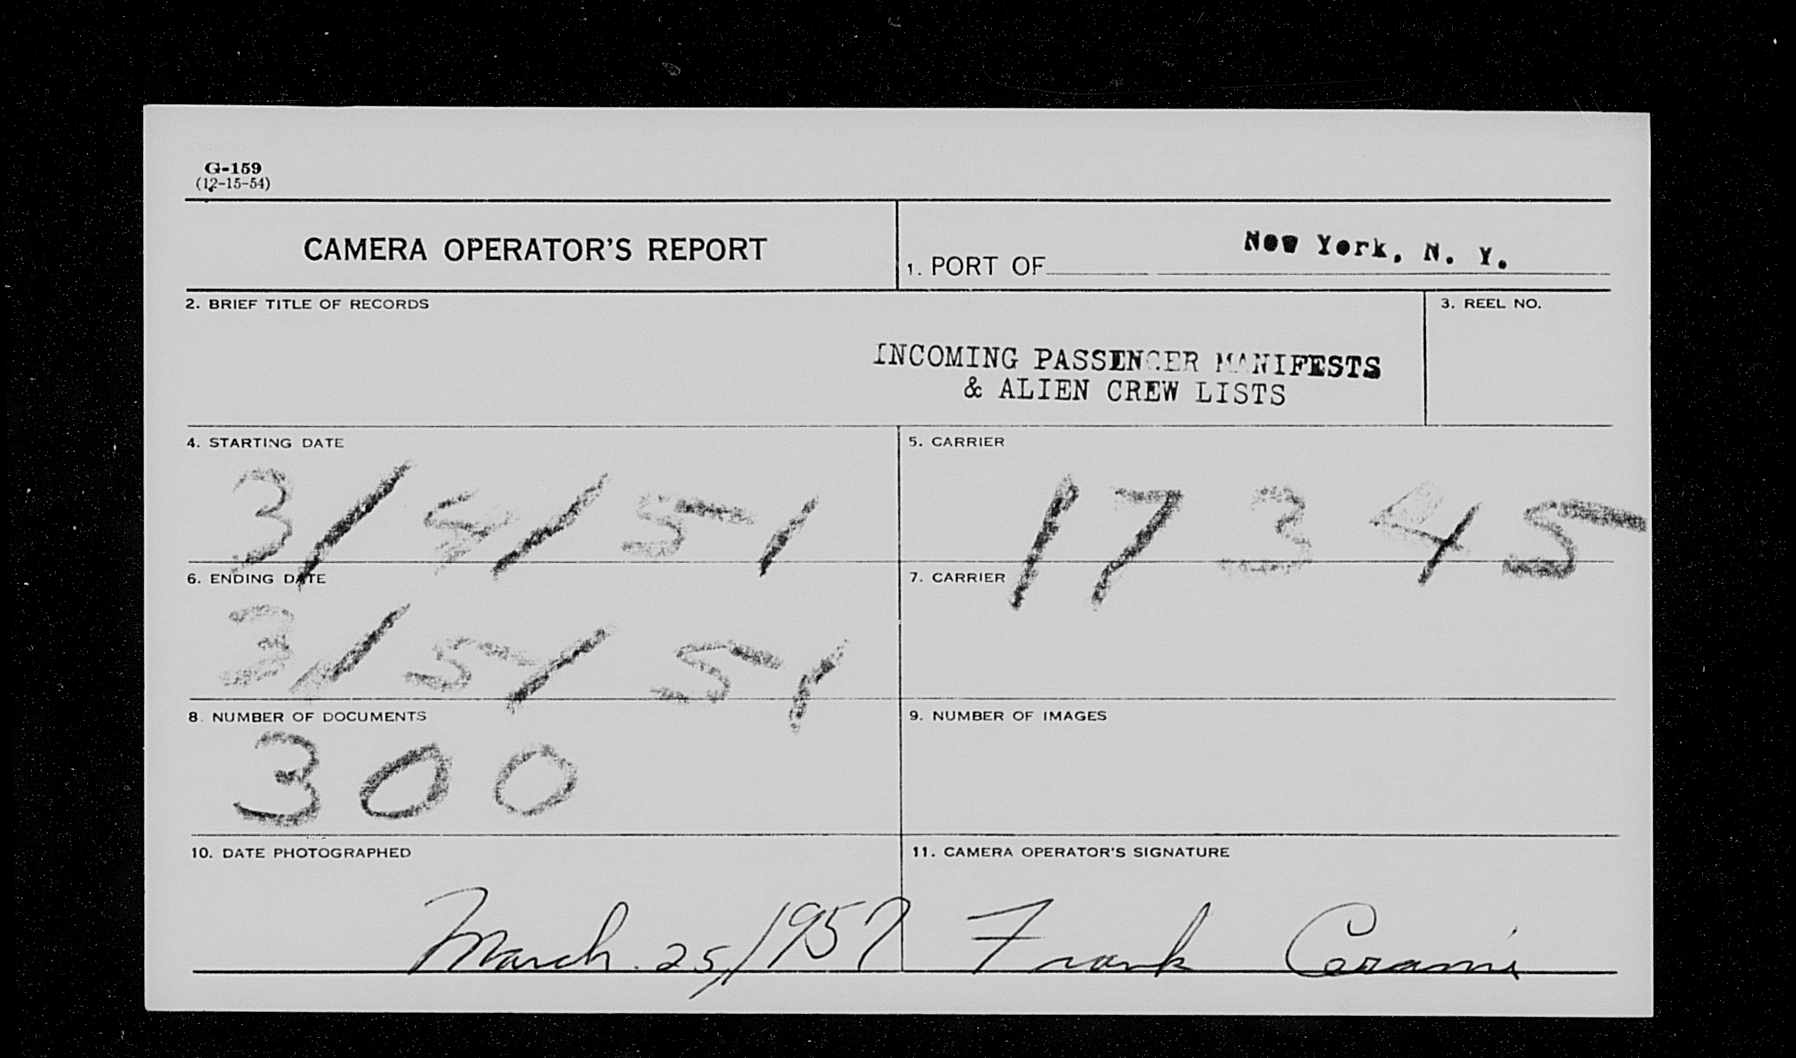 G-159
(12-15-54)
CAMERA OPERATOR'S REPORT
1. PORT OF New York, N. Y.
2. BRIEF TITLE OF RECORDS
INCOMING PASSENGER MANIFESTS
& ALIEN CREW LISTS
3. REEL NO.
4. STARTING DATE
3/ /51
5. CARRIER
17345
6. ENDING DATE
3/5/51
7. CARRIER
8. NUMBER OF DOCUMENTS
300
9. NUMBER OF IMAGES
10. DATE PHOTOGRAPHED
March 25/1957
11. CAMERA OPERATOR'S SIGNATURE
Frank